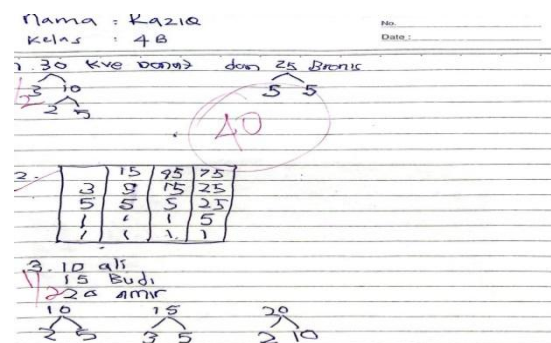 Nama : KaziQ
Kelas : 4B
No.
Date :
1. 30 kve donat dan 25 Bronis
3 10 5 5
2 5
40
2. 15 45 75
3 5 15 25
5 5 5 25
1 1 1 5
1 1 1 1
3. 10 ali
15 Budi
20 amir
10 15 20
2 5 3 5 2 10